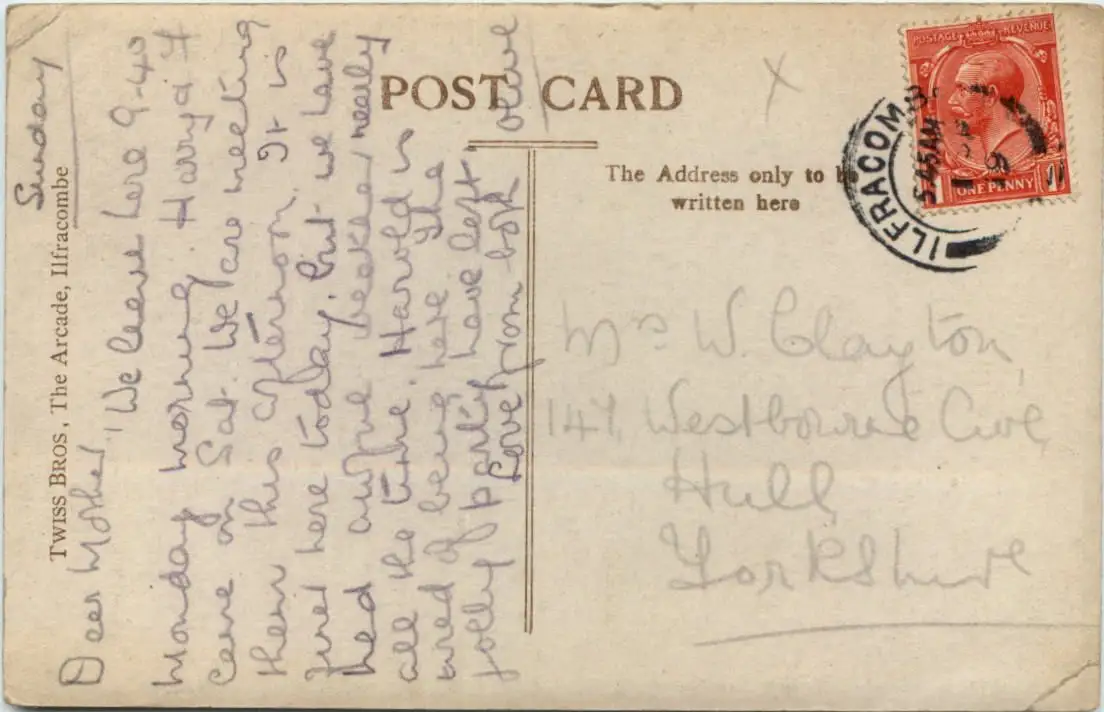 POST CARD
The Address only to be
written here
TWISS BROS, The Arcade, Ilfracombe
Sunday
Dear Mother, We leave here 9-40
Monday morning. Harry & F
came on Sat. We are meeting
them this afternoon. It is
fine here today, but we have
had awful weather nearly
all the time. Harold is
tired of being here. The
jolly party have left.
Love from both Olive
Mrs W. Clayton,
147, Westbourne Ave,
Hull
Yorkshire
X
POSTAGE REVENUE
1 ONE PENNY 1
ILFRACOMB
5.45AM